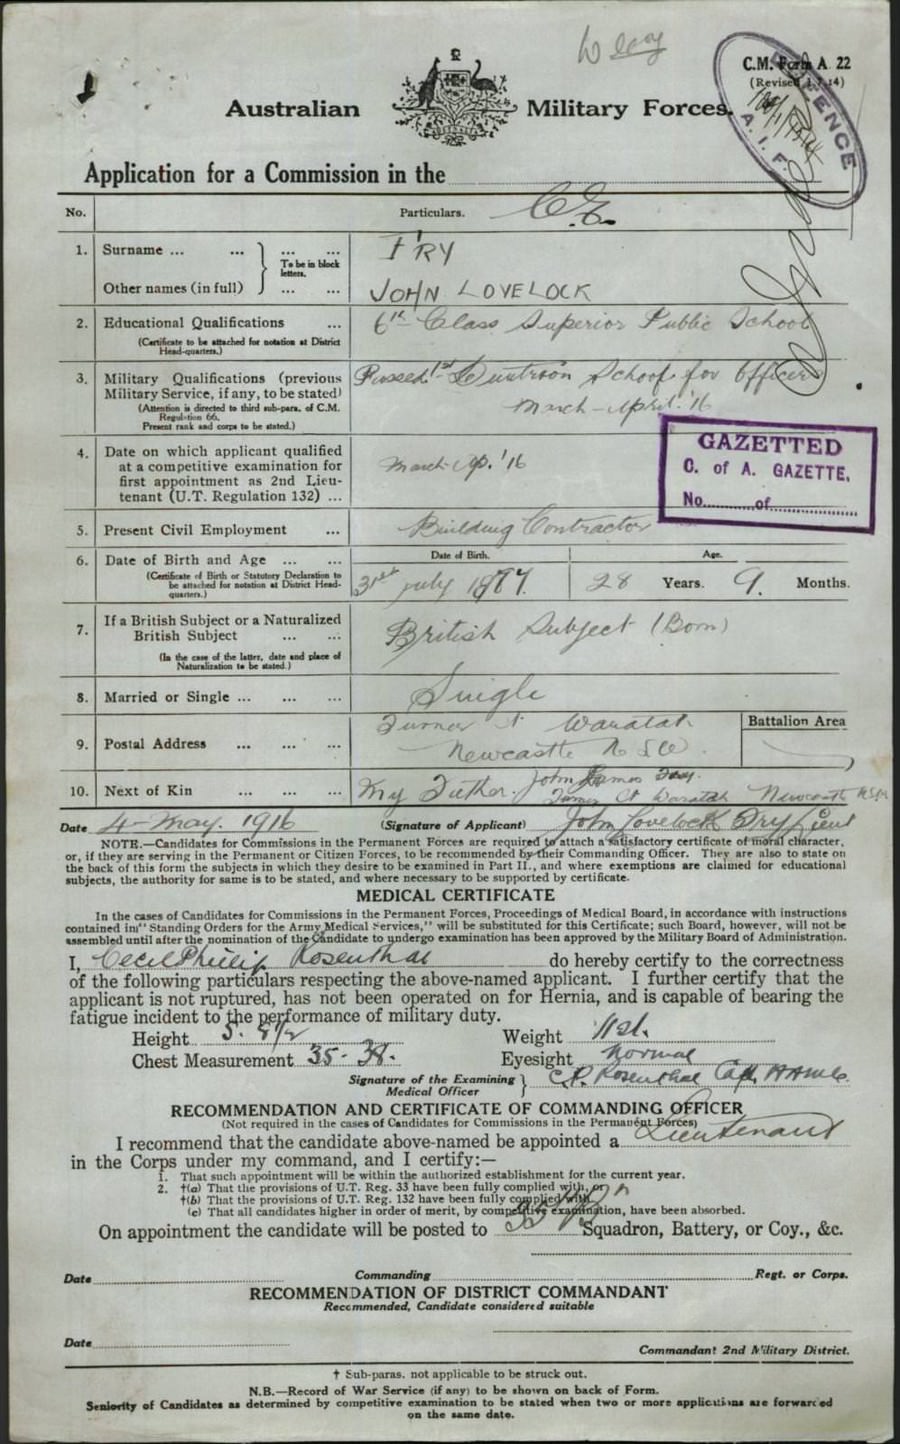 C.M. Form A 22
(Revised 1.7.14)
DEFENCE
A.I.F.
Australian Military Forces.
Application for a Commission in the
No. Particulars. C.E.
1. Surname ... ... To be in block letters. ... ... FRY
Other names (in full) ... ... JOHN LOVELOCK
2. Educational Qualifications ... 6th Class Superior Public School
(Certificate to be attached for notation at District
Head-quarters.)
3. Military Qualifications (previous Passed 1st Duntroon School for Officers
Military Service, if any, to be stated) March-April. '16
(Attention is directed to third sub-para. of C.M.
Regulation 66.
Present rank and corps to be stated.)
GAZETTED
C. of A. GAZETTE.
No. of
4. Date on which applicant qualified
at a competitive examination for March-Ap. '16
first appointment as 2nd Lieu-
tenant (U.T. Regulation 132) ...
5. Present Civil Employment ... Building Contractor
6. Date of Birth and Age ... ... Date of Birth. Age.
(Certificate of Birth or Statutory Declaration to
be attached for notation at District Head-
quarters.)
31st July 1887. 28 Years. 9. Months.
7. If a British Subject or a Naturalized
British Subject ... ... British Subject (Born)
(In the case of the latter, date and place of
Naturalization to be stated.)
8. Married or Single ... ... ... Single
9. Postal Address ... ... ... Turner St Waratah
Newcastle N S W.
Battalion Area
10. Next of Kin ... ... ... My Father. John James Fry.
Turner St Waratah Newcastle NSW
Date 4-May. 1916 (Signature of Applicant) John Lovelock Fry Lieut
NOTE.—Candidates for Commissions in the Permanent Forces are required to attach a satisfactory certificate of moral character,
or, if they are serving in the Permanent or Citizen Forces, to be recommended by their Commanding Officer. They are also to state on
the back of this form the subjects in which they desire to be examined in Part II., and where exemptions are claimed for educational
subjects, the authority for same is to be stated, and where necessary to be supported by certificate.
MEDICAL CERTIFICATE
In the cases of Candidates for Commissions in the Permanent Forces, Proceedings of Medical Board, in accordance with instructions
contained in "Standing Orders for the Army Medical Services," will be substituted for this Certificate; such Board, however, will not be
assembled until after the nomination of the Candidate to undergo examination has been approved by the Military Board of Administration.
I, Cecil Phillip Rosenthal do hereby certify to the correctness
of the following particulars respecting the above-named applicant. I further certify that the
applicant is not ruptured, has not been operated on for Hernia, and is capable of bearing the
fatigue incident to the performance of military duty.
Height 5. 8½ Weight 11st.
Chest Measurement 35-38. Eyesight Normal
Signature of the Examining
Medical Officer C.P. Rosenthal Capt AAMC.
RECOMMENDATION AND CERTIFICATE OF COMMANDING OFFICER
(Not required in the cases of Candidates for Commissions in the Permanent Forces)
I recommend that the candidate above-named be appointed a Lieutenant
in the Corps under my command, and I certify:—
1. That such appointment will be within the authorized establishment for the current year.
2. †(a) That the provisions of U.T. Reg. 33 have been fully complied with, or
†(b) That the provisions of U.T. Reg. 132 have been fully complied with.
(c) That all candidates higher in order of merit, by competitive examination, have been absorbed.
On appointment the candidate will be posted to Squadron, Battery, or Coy., &c.
Date Commanding Regt. or Corps.
RECOMMENDATION OF DISTRICT COMMANDANT
Recommended, Candidate considered suitable
Date
Commandant 2nd Military District.
† Sub-paras. not applicable to be struck out.
N.B.—Record of War Service (if any) to be shown on back of Form.
Seniority of Candidates as determined by competitive examination to be stated when two or more applications are forwarded
on the same date.